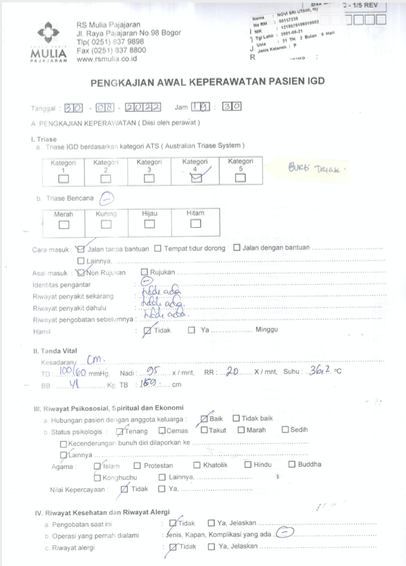 RS Mulia Pajajaran
Jl. Raya Pajajaran No.98 Bogor
Tlp( 0251) 837 9898
Fax (0251) 837 8800
www.rsmulia.co.id
MULIA
PAJAJARAN
- 1/5 REV
PENGKAJIAN AWAL KEPERAWATAN PASIEN IGD
Tanggal : 30 - 08 - 2022 Jam 19 : 30
A. PENGKAJIAN KEPERAWATAN ( Diisi oleh perawat )
I. Triase
a. Triase IGD berdasarkan kategori ATS ( Australian Triase System )
Kategori 1 Kategori 2 Kategori 3 Kategori 4 Kategori 5
b. Triase Bencana
Merah Kuning Hijau Hitam
Cara masuk : Jalan tanpa bantuan Tempat tidur dorong Jalan dengan bantuan
Lainnya,
Asal masuk : Non Rujukan Rujukan
Identitas pengantar :
Riwayat penyakit sekarang : tidak ada
Riwayat penyakit dahulu : tidak ada
Riwayat pengobatan sebelumnya : tidak ada
Hamil : Tidak Ya Minggu
II. Tanda Vital
Kesadaran : cm.
TD : 100/60 mmHg, Nadi : 95 x / mnt, RR : 20 X / mnt, Suhu : 36,2 °C
BB : 41 Kg TB : 150 cm
III. Riwayat Psikososial, Spiritual dan Ekonomi
a. Hubungan pasien dengan anggota keluarga : Baik Tidak baik
b. Status psikologis : Tenang Cemas Takut Marah Sedih
Kecenderungan bunuh diri dilaporkan ke
Lainnya
Agama : Islam Protestan Khatolik Hindu Buddha
Konghuchu Lainnya,
Nilai Kepercayaan : Tidak Ya,
IV. Riwayat Kesehatan dan Riwayat Alergi
a. Pengobatan saat ini : Tidak Ya, Jelaskan
b. Operasi yang pernah dialami : Jenis, Kapan, Komplikasi yang ada
c. Riwayat alergi : Tidak Ya, Jelaskan